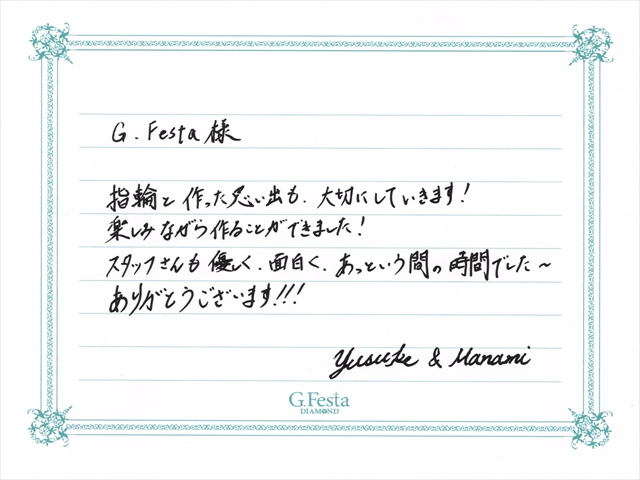 G. Festa 様
指輪と作った思い出も、大切にしていきます!
楽しみながら作ることができました!
スタッフさんも優しく、面白く、あっという間の時間でした〜
ありがとうございます!!!
Yusuke & Manami
G.Festa
DIAMOND